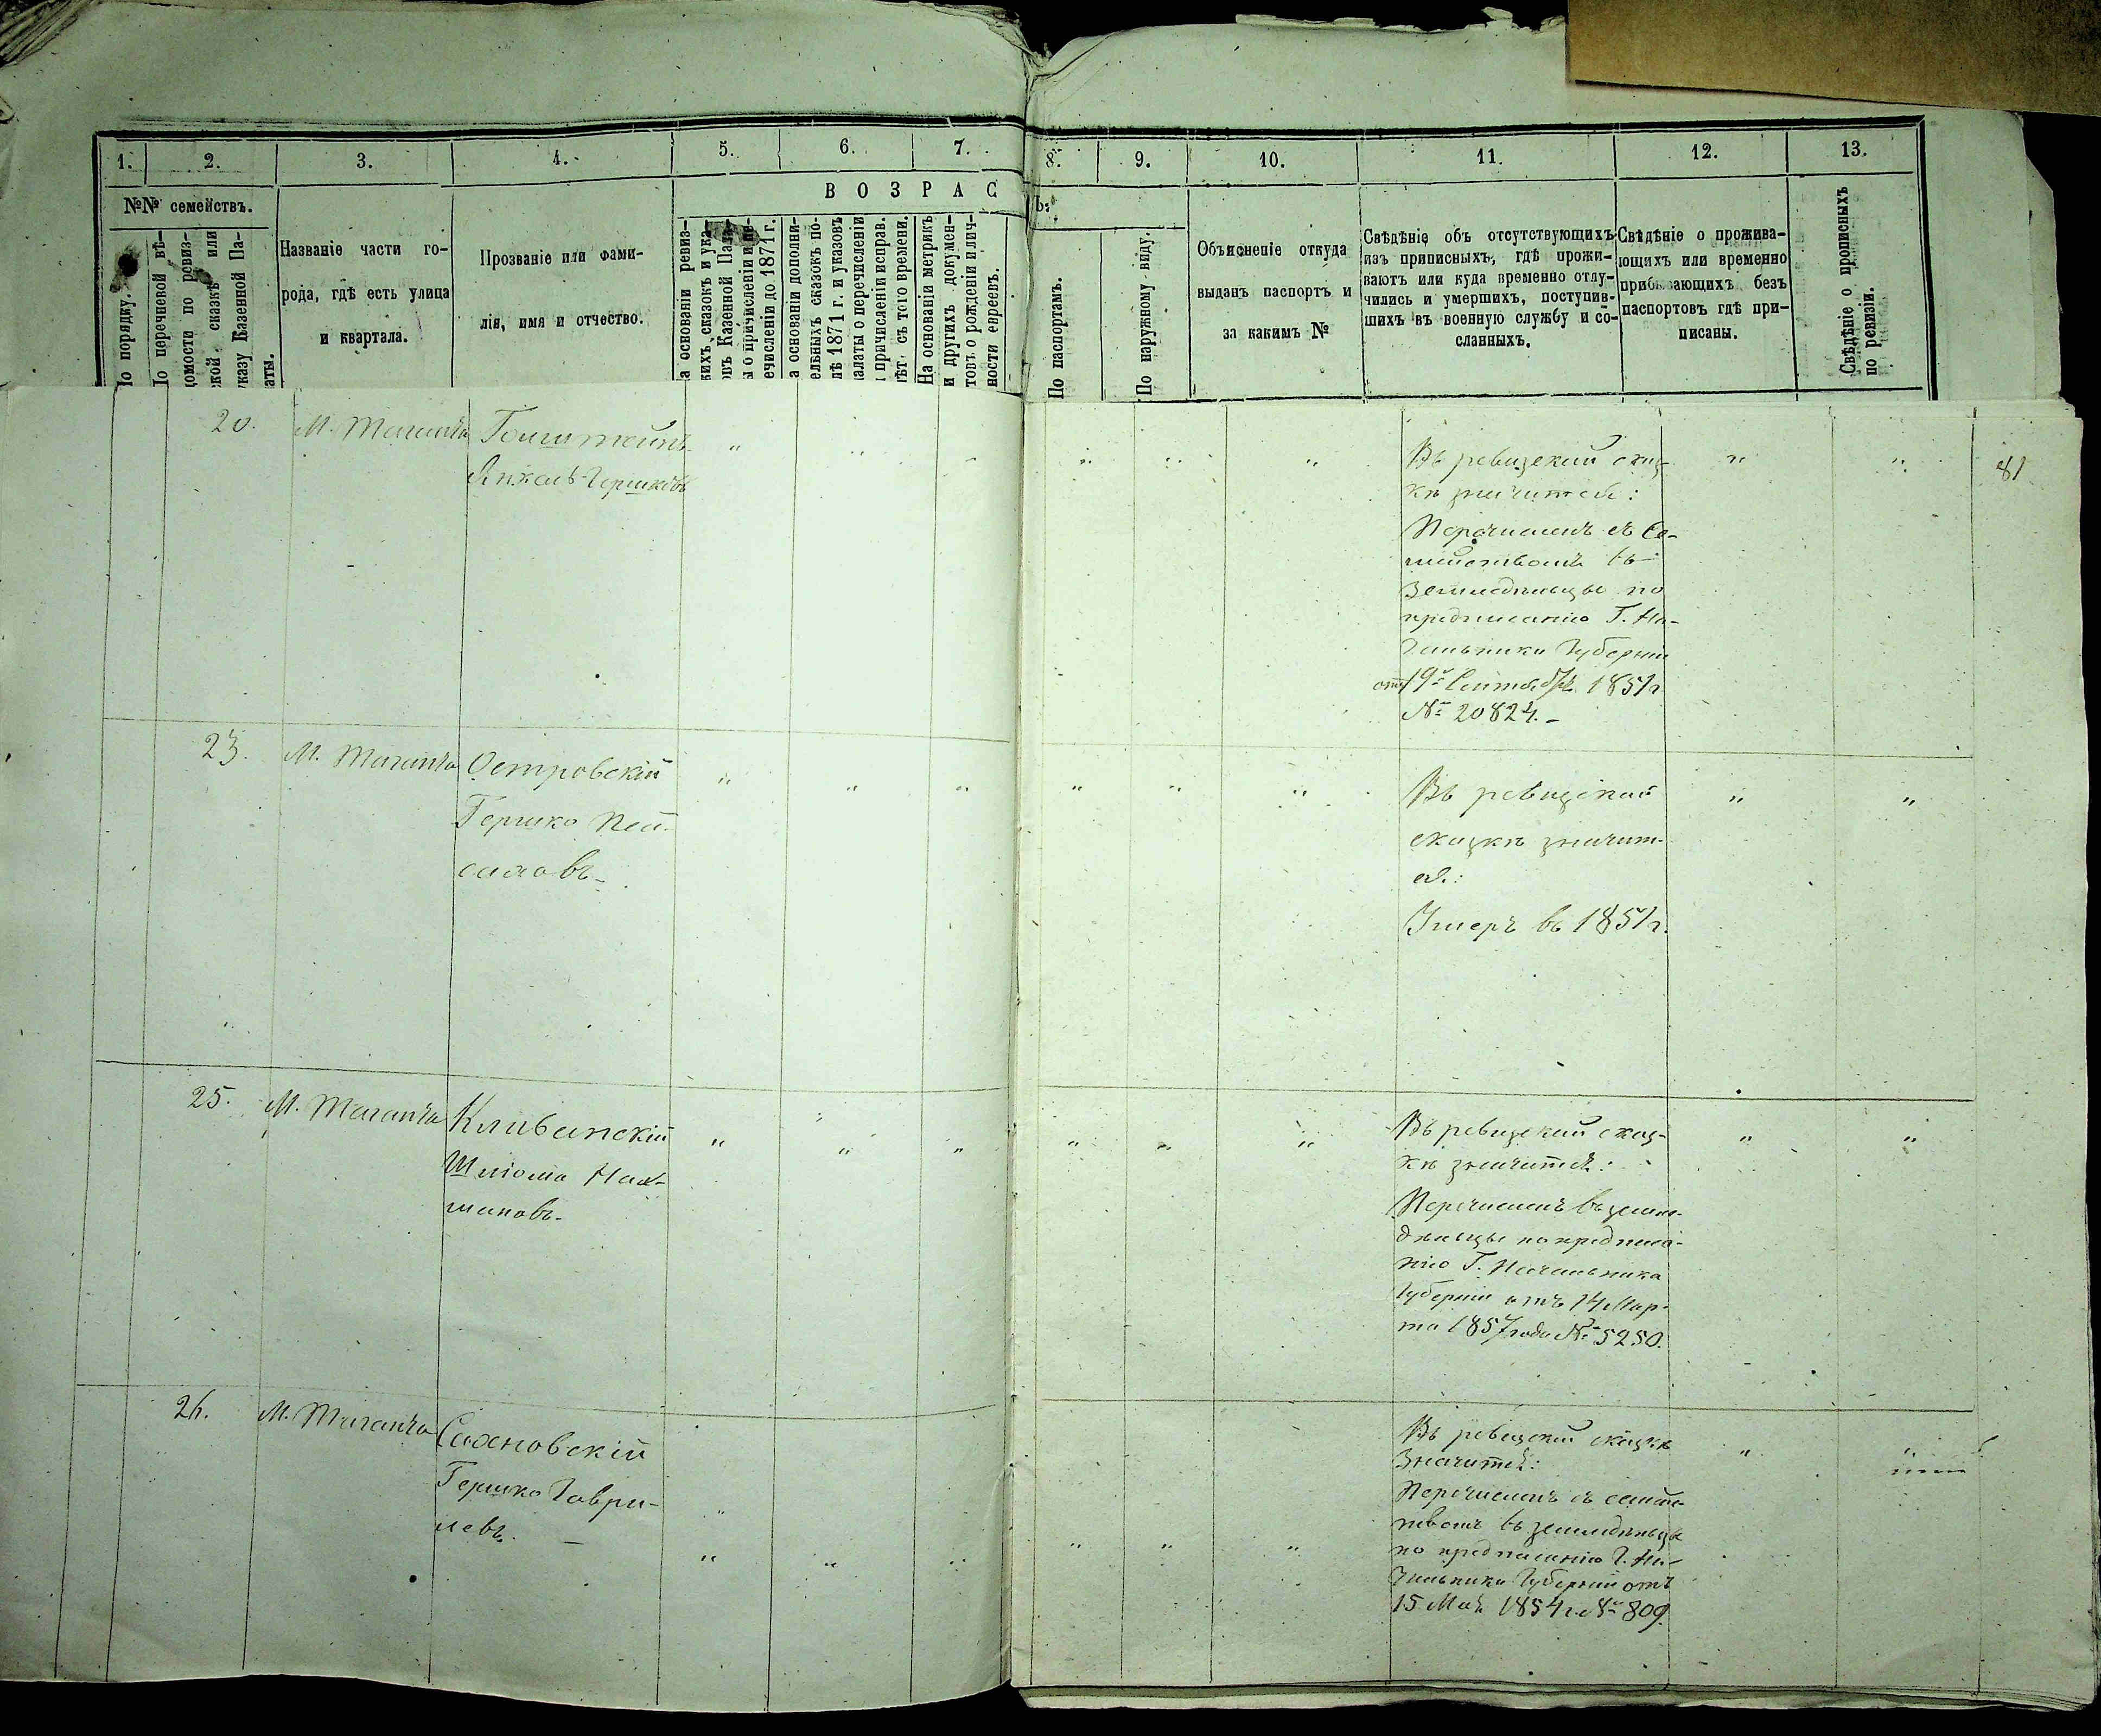 1.
2.
3.
4.
5.
6.
7.
8.
9.
10.
11.
12.
13.
№№ семействъ.
В О З Р А С
ъ:
По порядку.
По перечневой вѣ-
домости по ревиз-
ской сказкѣ или
указу Казенной Па-
латы.
Названіе части го-
рода, гдѣ есть улица
и квартала.
Прозваніе или фами-
лія, имя и отчество.
а основаніи ревиз-
кихъ сказокъ и ука-
овъ Казенной Пала-
ы о причисленіи и пе-
ечисленіи до 1871 г.
а основаніи дополни-
ельныхъ сказокъ по-
лѣ 1871 г. и указовъ
алаты о перечисленіи
и причисленіи исправ.
лѣт. съ того времени.
На основаніи метрикъ
и другихъ докумен-
товъ о рожденіи и лич-
ности евреевъ.
По паспортамъ.
По наружному виду.
Объясненіе откуда
выданъ паспортъ и
за какимъ №
Свѣдѣніе объ отсутствующихъ
изъ приписныхъ, гдѣ прожи-
ваютъ или куда временно отлу-
чились и умершихъ, поступив-
шихъ въ военную службу и со-
сланныхъ.
Свѣдѣніе о прожива-
ющихъ или временно
прибывающихъ безъ
паспортовъ гдѣ при-
писаны.
Свѣдѣніе о прописныхъ
по ревизіи.
20.
М. Таганча
Янкель Гершковъ
Въ ревизской сказ-
кѣ значится:
Перечисленъ съ Се-
мействомъ въ
Земледѣльцы по
предписанію Г. На-
чальника Губерніи
отъ 19 Сентября 1851 г.
№ 20824.-
81
23.
М. Таганча
Островскій
Гершко Пей-
саховъ-
Въ ревизской
сказкѣ значит-
ся:
Умеръ въ 1851 г.
25.
М. Таганча
Кливанскій
Шлiома Нах-
мановъ-
Въ ревизской сказ-
кѣ значится:
Перечисленъ въ земле-
дѣльцы по предписа-
нію Г. Начальника
Губерніи отъ 14 Мар-
та 1857 года № 5250.
26.
М. Таганча
Сахновскій
Гершко Гаври-
левъ.
Въ ревизской сказкѣ
Значится:
Перечисленъ съ семей-
ствомъ въ земледѣльцы
по предписанію Г. На-
чальника Губерніи отъ
15 Мая 1854 г. № 809.